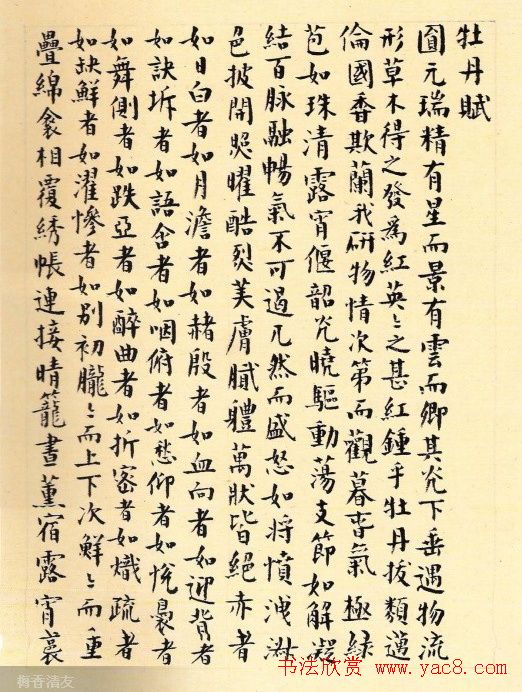 牡丹賦
圓元瑞精有星而景有雲而卿其光下垂遇物流
形草木得之發爲紅英〻之甚紅鍾乎牡丹拔類邁
倫國香欺蘭我研物情次第而觀暮春氣極綠
苞如珠清露宵偃韶光曉驅動蕩支節如解凝
結百脉融暢氣不可遏兀然而盛怒如將憤洩淑
色披開照曜酷烈美膚膩體萬狀皆絕赤者
如日白者如月澹者如赭殷者如血向者如迎背者
如訣坼者如語含者如咽俯者如愁仰者如悅裊者
如舞側者如跌亞者如醉曲者如折密者如熾疏者
如缺鮮者如濯慘者如別初朧〻而上下次鮮〻而重
疊綿衾相覆綉帳連接晴籠晝薰宿露宵裛
书法欣赏 www.yac8.com
梅香洁友